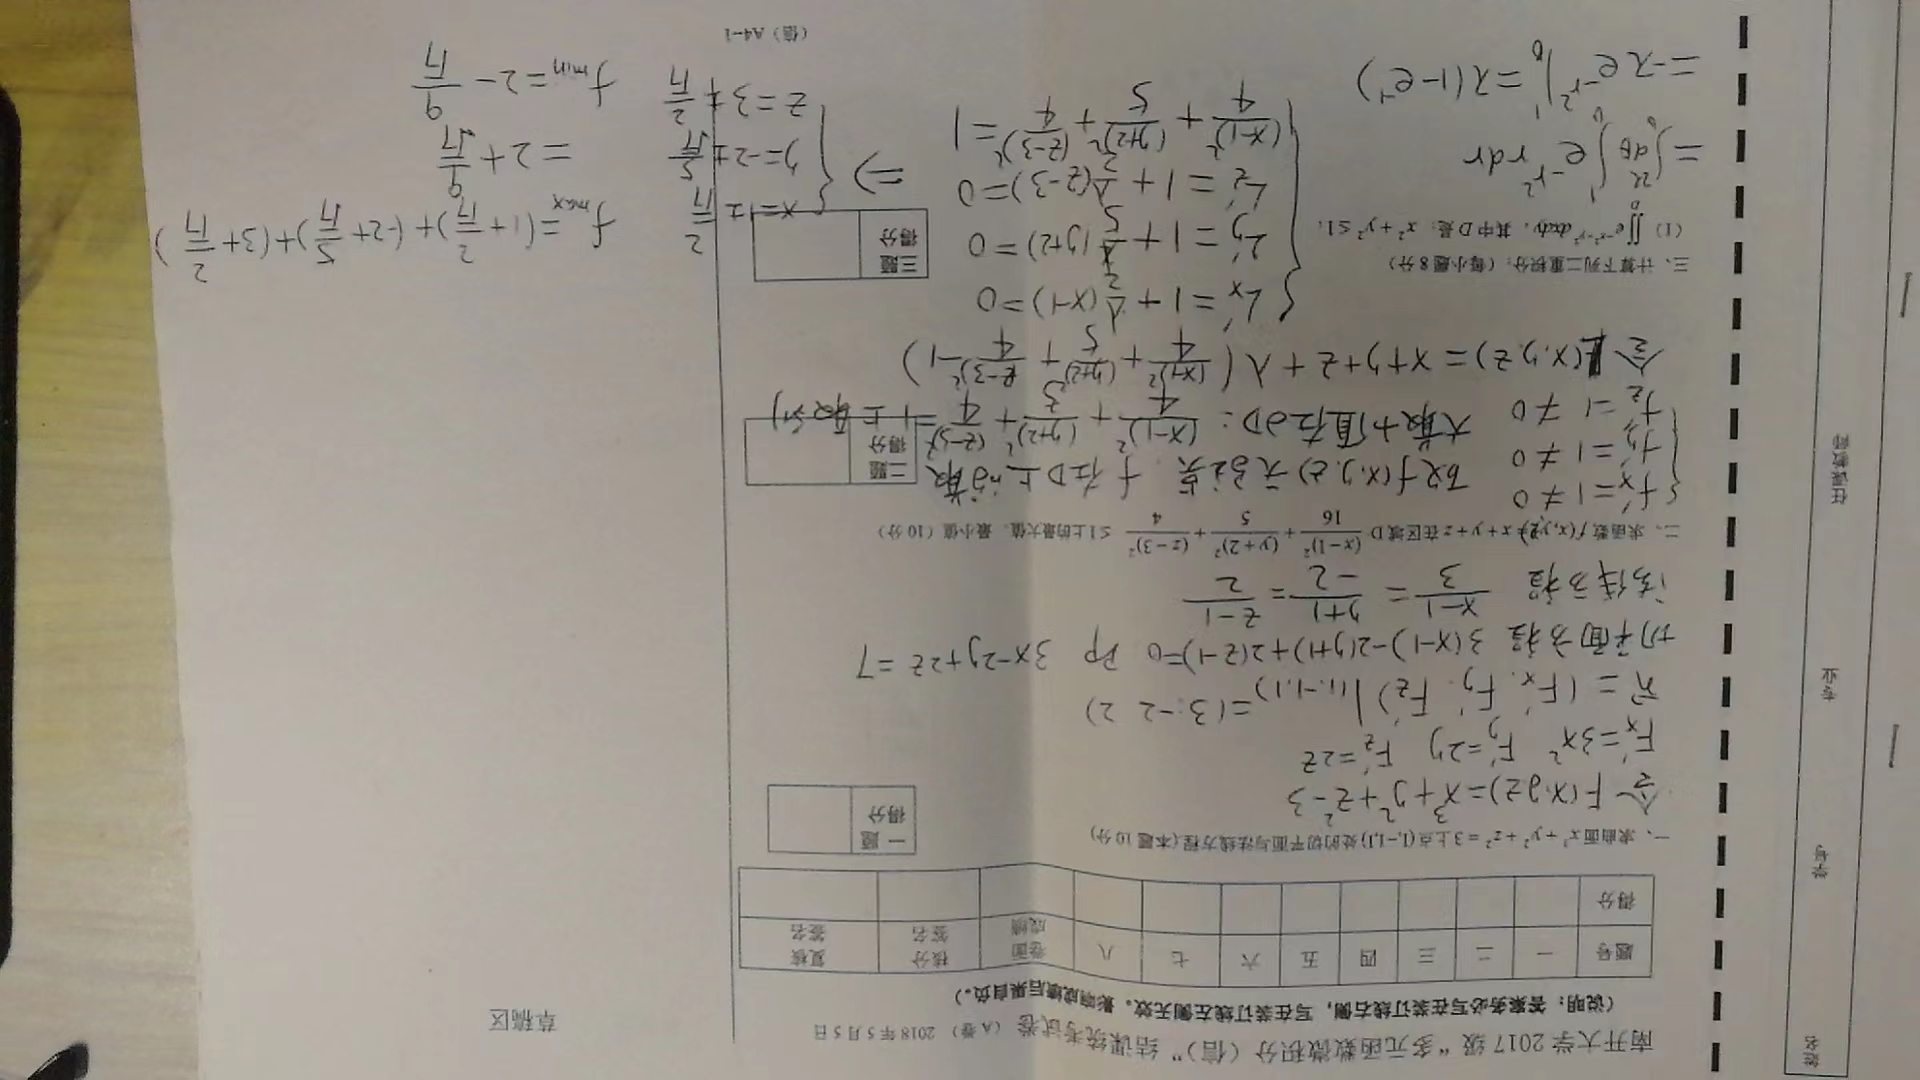 姓名
学号
专业
任课教师
南开大学2017级“多元函数微积分(信)”结课统考试卷(A卷) 2018年5月5日
(说明:答案务必写在装订线右侧,写在装订线左侧无效。影响成绩后果自负。)
草稿区
题号 一 二 三 四 五 六 七 八 卷面成绩 核分签名 复核签名
得分
一、求曲面 x³+y²+z²=3上点(1,-1,1)处的切平面与法线方程.(本题10分)
一题得分
令 F(x,y,z)=x³+y²+z²-3
Fx'=3x² Fy'=2y Fz'=2z
n⃗=(Fx', Fy', Fz')|(1,-1,1)=(3,-2 2)
切平面方程 3(x-1)-2(y+1)+2(z-1)=0 即 3x-2y+2z=7
法线方程 (x-1)/3=(y+1)/-2=(z-1)/2
二、求函数f(x,y,z)=x+y+z在区域D (x-1)²/16+(y+2)²/5+(z-3)²/4 ≤1上的最大值、最小值(10分)
二题得分
fx'=1≠0
fy'=1≠0
fz'=1≠0
故f(x,y,z)无驻点, f在D上的最
大最小值在∂D: (x-1)²/4+(y+2)²/5+(z-3)²/4=1上取到
令L(x,y,z)=x+y+z+λ((x-1)²/4+(y+2)²/5+(z-3)²/4-1)
Lx'=1+λ/2(x-1)=0
Ly'=1+2λ/5(y+2)=0
Lz'=1+λ/2(z-3)=0
(x-1)²/4+(y+2)²/5+(z-3)²/4=1
⇒ x=1±2/√17
y=-2±5/√17
z=3±2/√17
fmax=(1+2/√17)+(-2+5/√17)+(3+2/√17)
=2+9/√17
fmin=2-9/√17
三、计算下列二重积分:(每小题8分)
三题得分
(1) ∬D e^(-x²-y²)dxdy,其中D是:x²+y²≤1;
=∫₀^2π dθ∫₀^1 e^(-r²) r dr
=-π e^(-r²)|₀^1=π(1-e⁻¹)
(信) A4-1